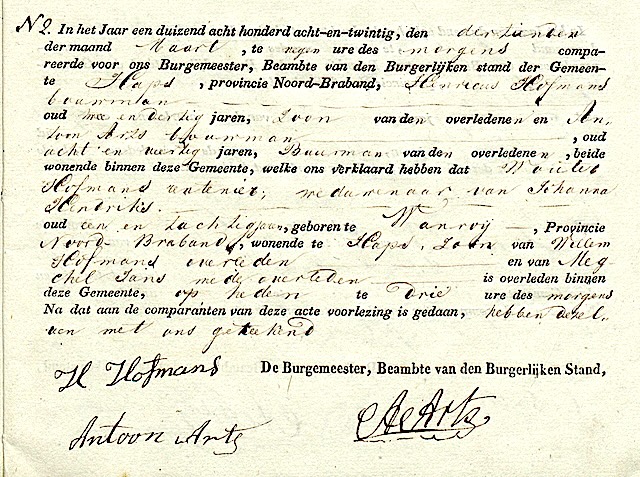 N 2. In het Jaar een duizend acht honderd acht-en-twintig, den dertienden
der maand Maart, te negen ure des morgens compa-
reerde voor ons Burgemeester, Beambte van den Burgerlijken stand der Gemeen-
te Haps, provincie Noord-Braband, Henricus Hofmans
bouwman
oud twee en dertig jaren, Zoon van den overledenen en An-
toon Arts bouwman, oud
acht en veertig jaren, Buurman van den overledenen, beide
wonende binnen deze Gemeente, welke ons verklaard hebben dat Wouter
Hofmans rentenier, weduwenaar van Johanna
Hendriks
oud een en tachtig jaar, geboren te Wanroij, Provincie
Noord Braband, wonende te Haps, Zoon van Willem
Hofmans overleden en van Meg
chel Jans mede overleden is overleden binnen
deze Gemeente, op heden te drie ure des morgens
Na dat aan de comparanten van deze acte voorlezing is gedaan, hebben dezel-
ven met ons geteekend
H Hofmans
De Burgemeester, Beambte van den Burgerlijken Stand,
Antoon Arts